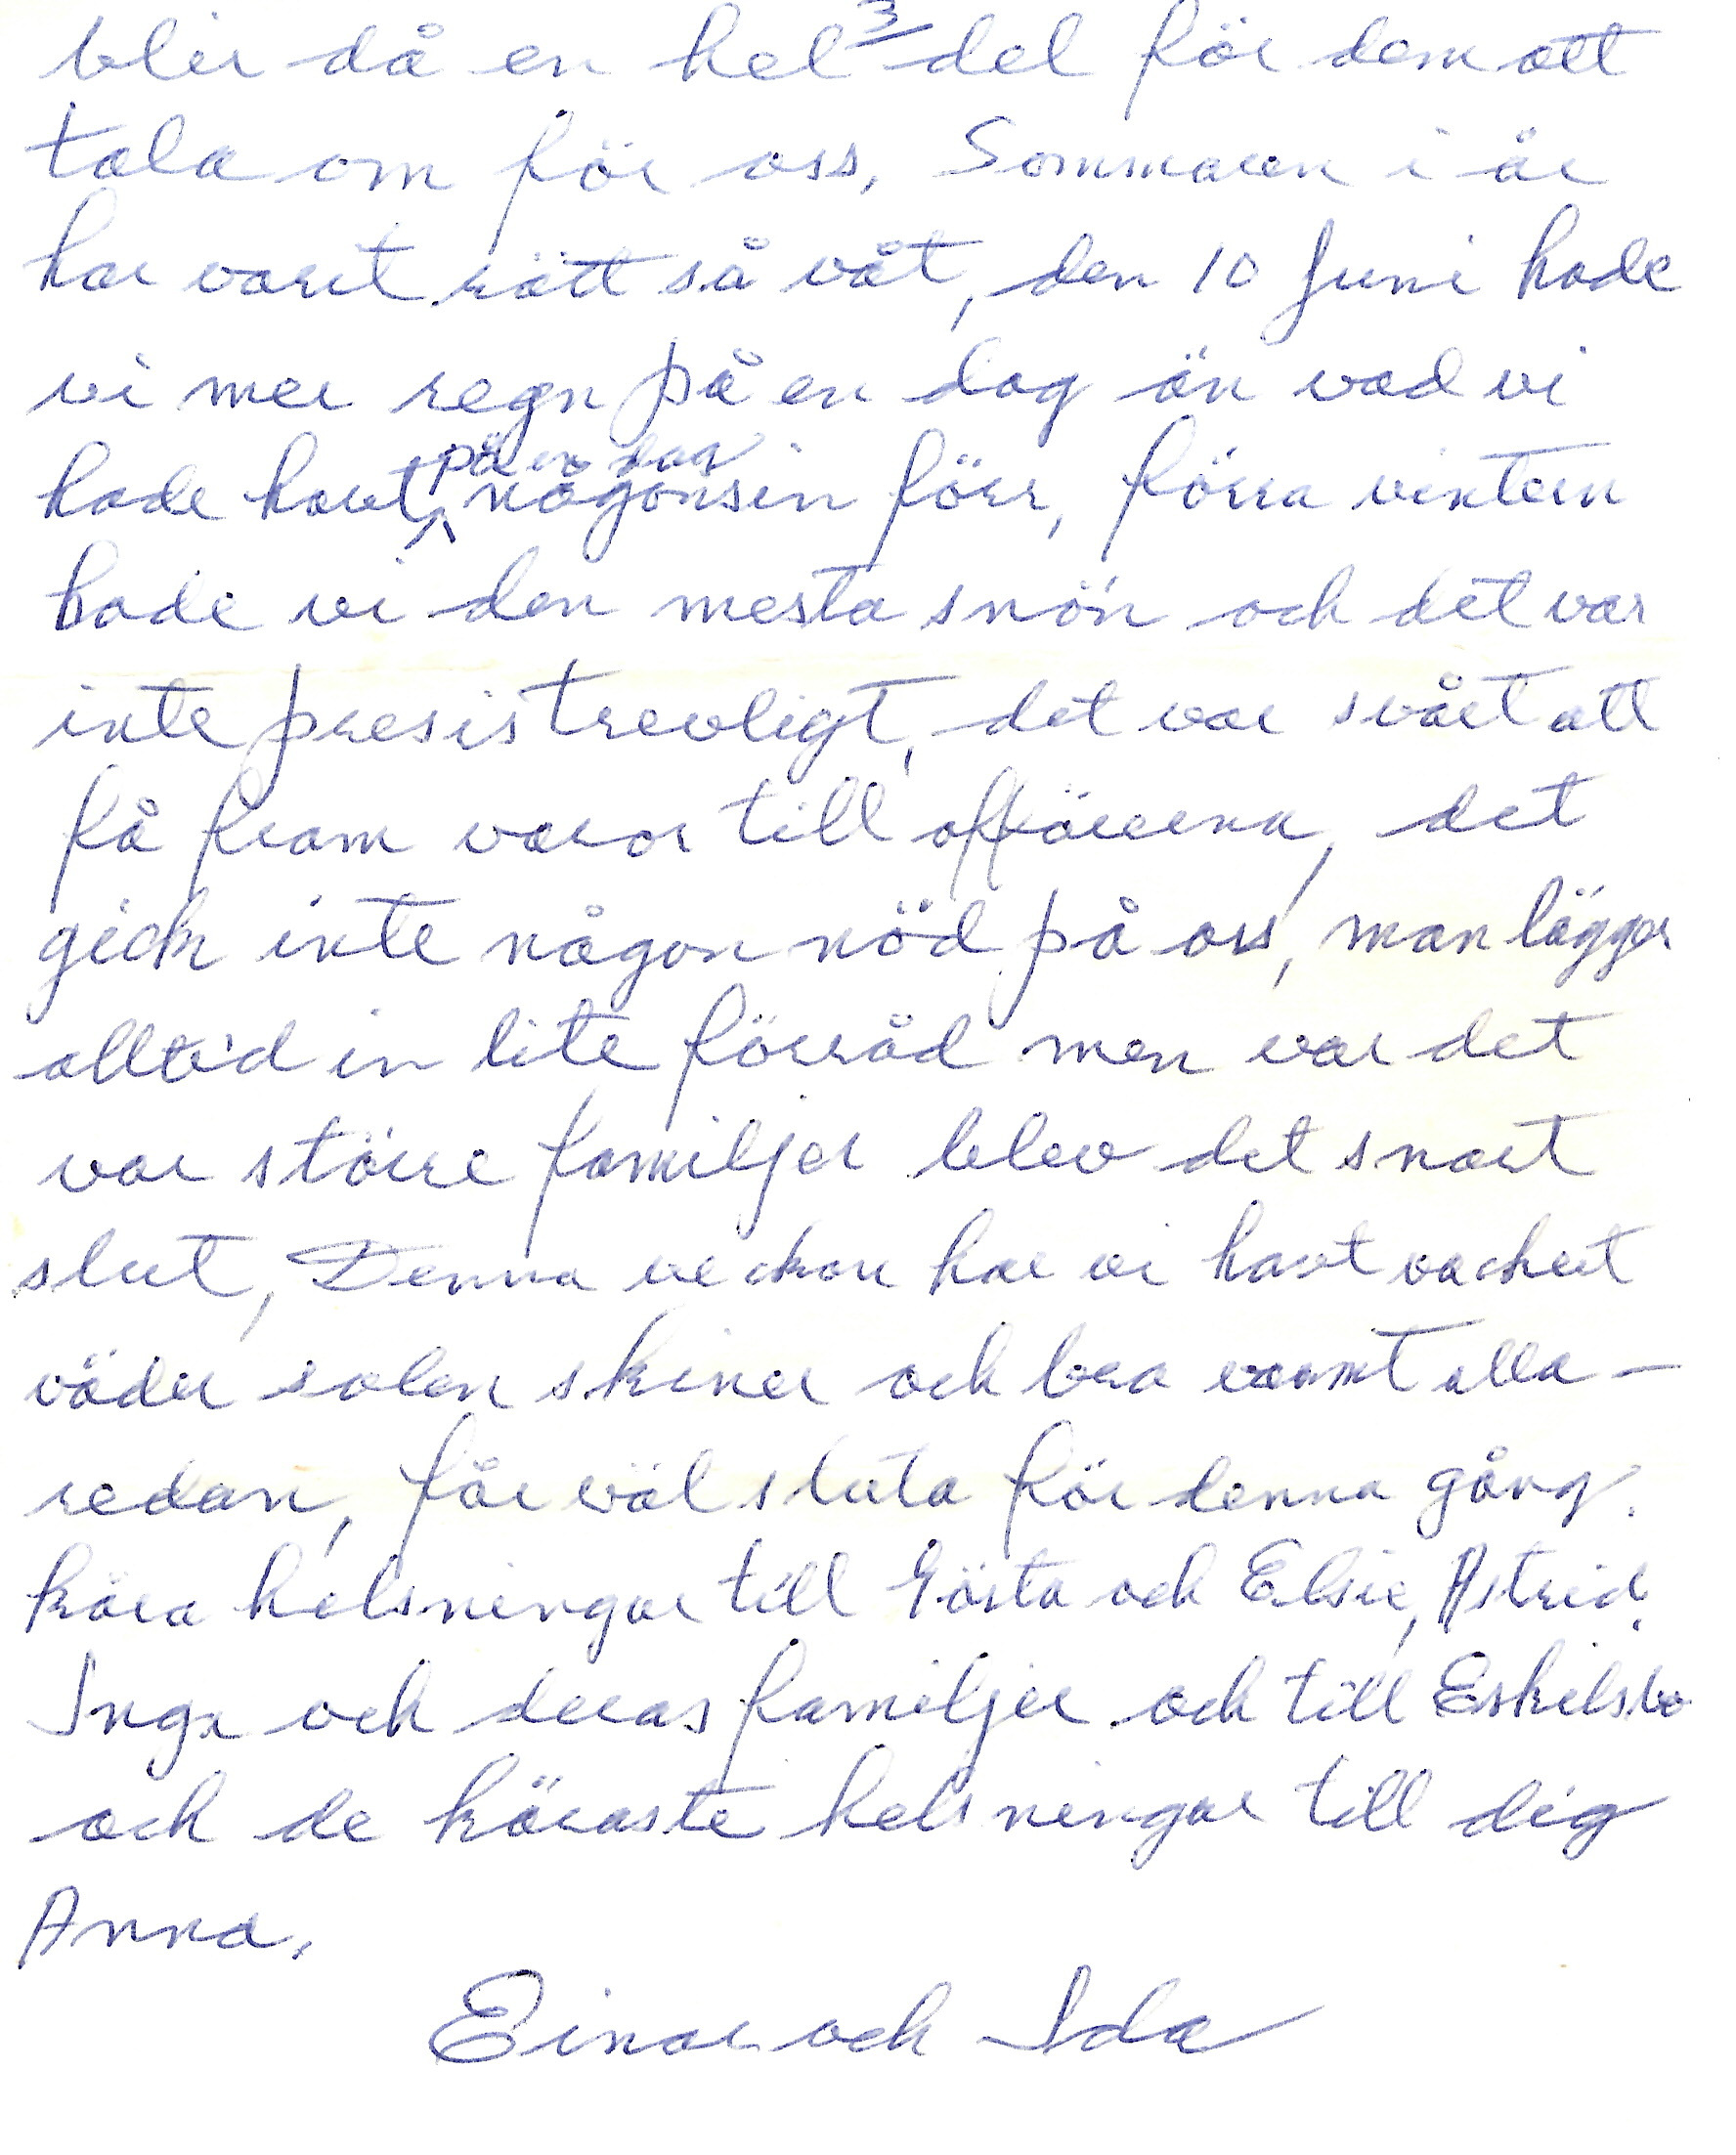 3
blir då en hel del för dem att
tala om för oss, Sommaren i år
har varit rätt så våt, den 10 Juni hade
vi mer regn på en dag än vad vi
på en dag
hade havt någonsin förr, förra vintern
hade vi den mesta snön och det var
inte presis trevligt, det var svårt att
få fram varor till affärerna, det
gick inte någon nöd på oss, man lägger
alltid in lite förråd men var det
var större familjer blev det snart
slut, Denna veckan har vi havt vackert
väder solen skiner och bra varmt alla-
redan, får väl sluta för denna gång.
kära helsningar till Gösta och Elsie, Astrid,
Inga och deras familjer och till Eskilsbo
och de käraste helsningar till dig
Anna.
Einar och Ida